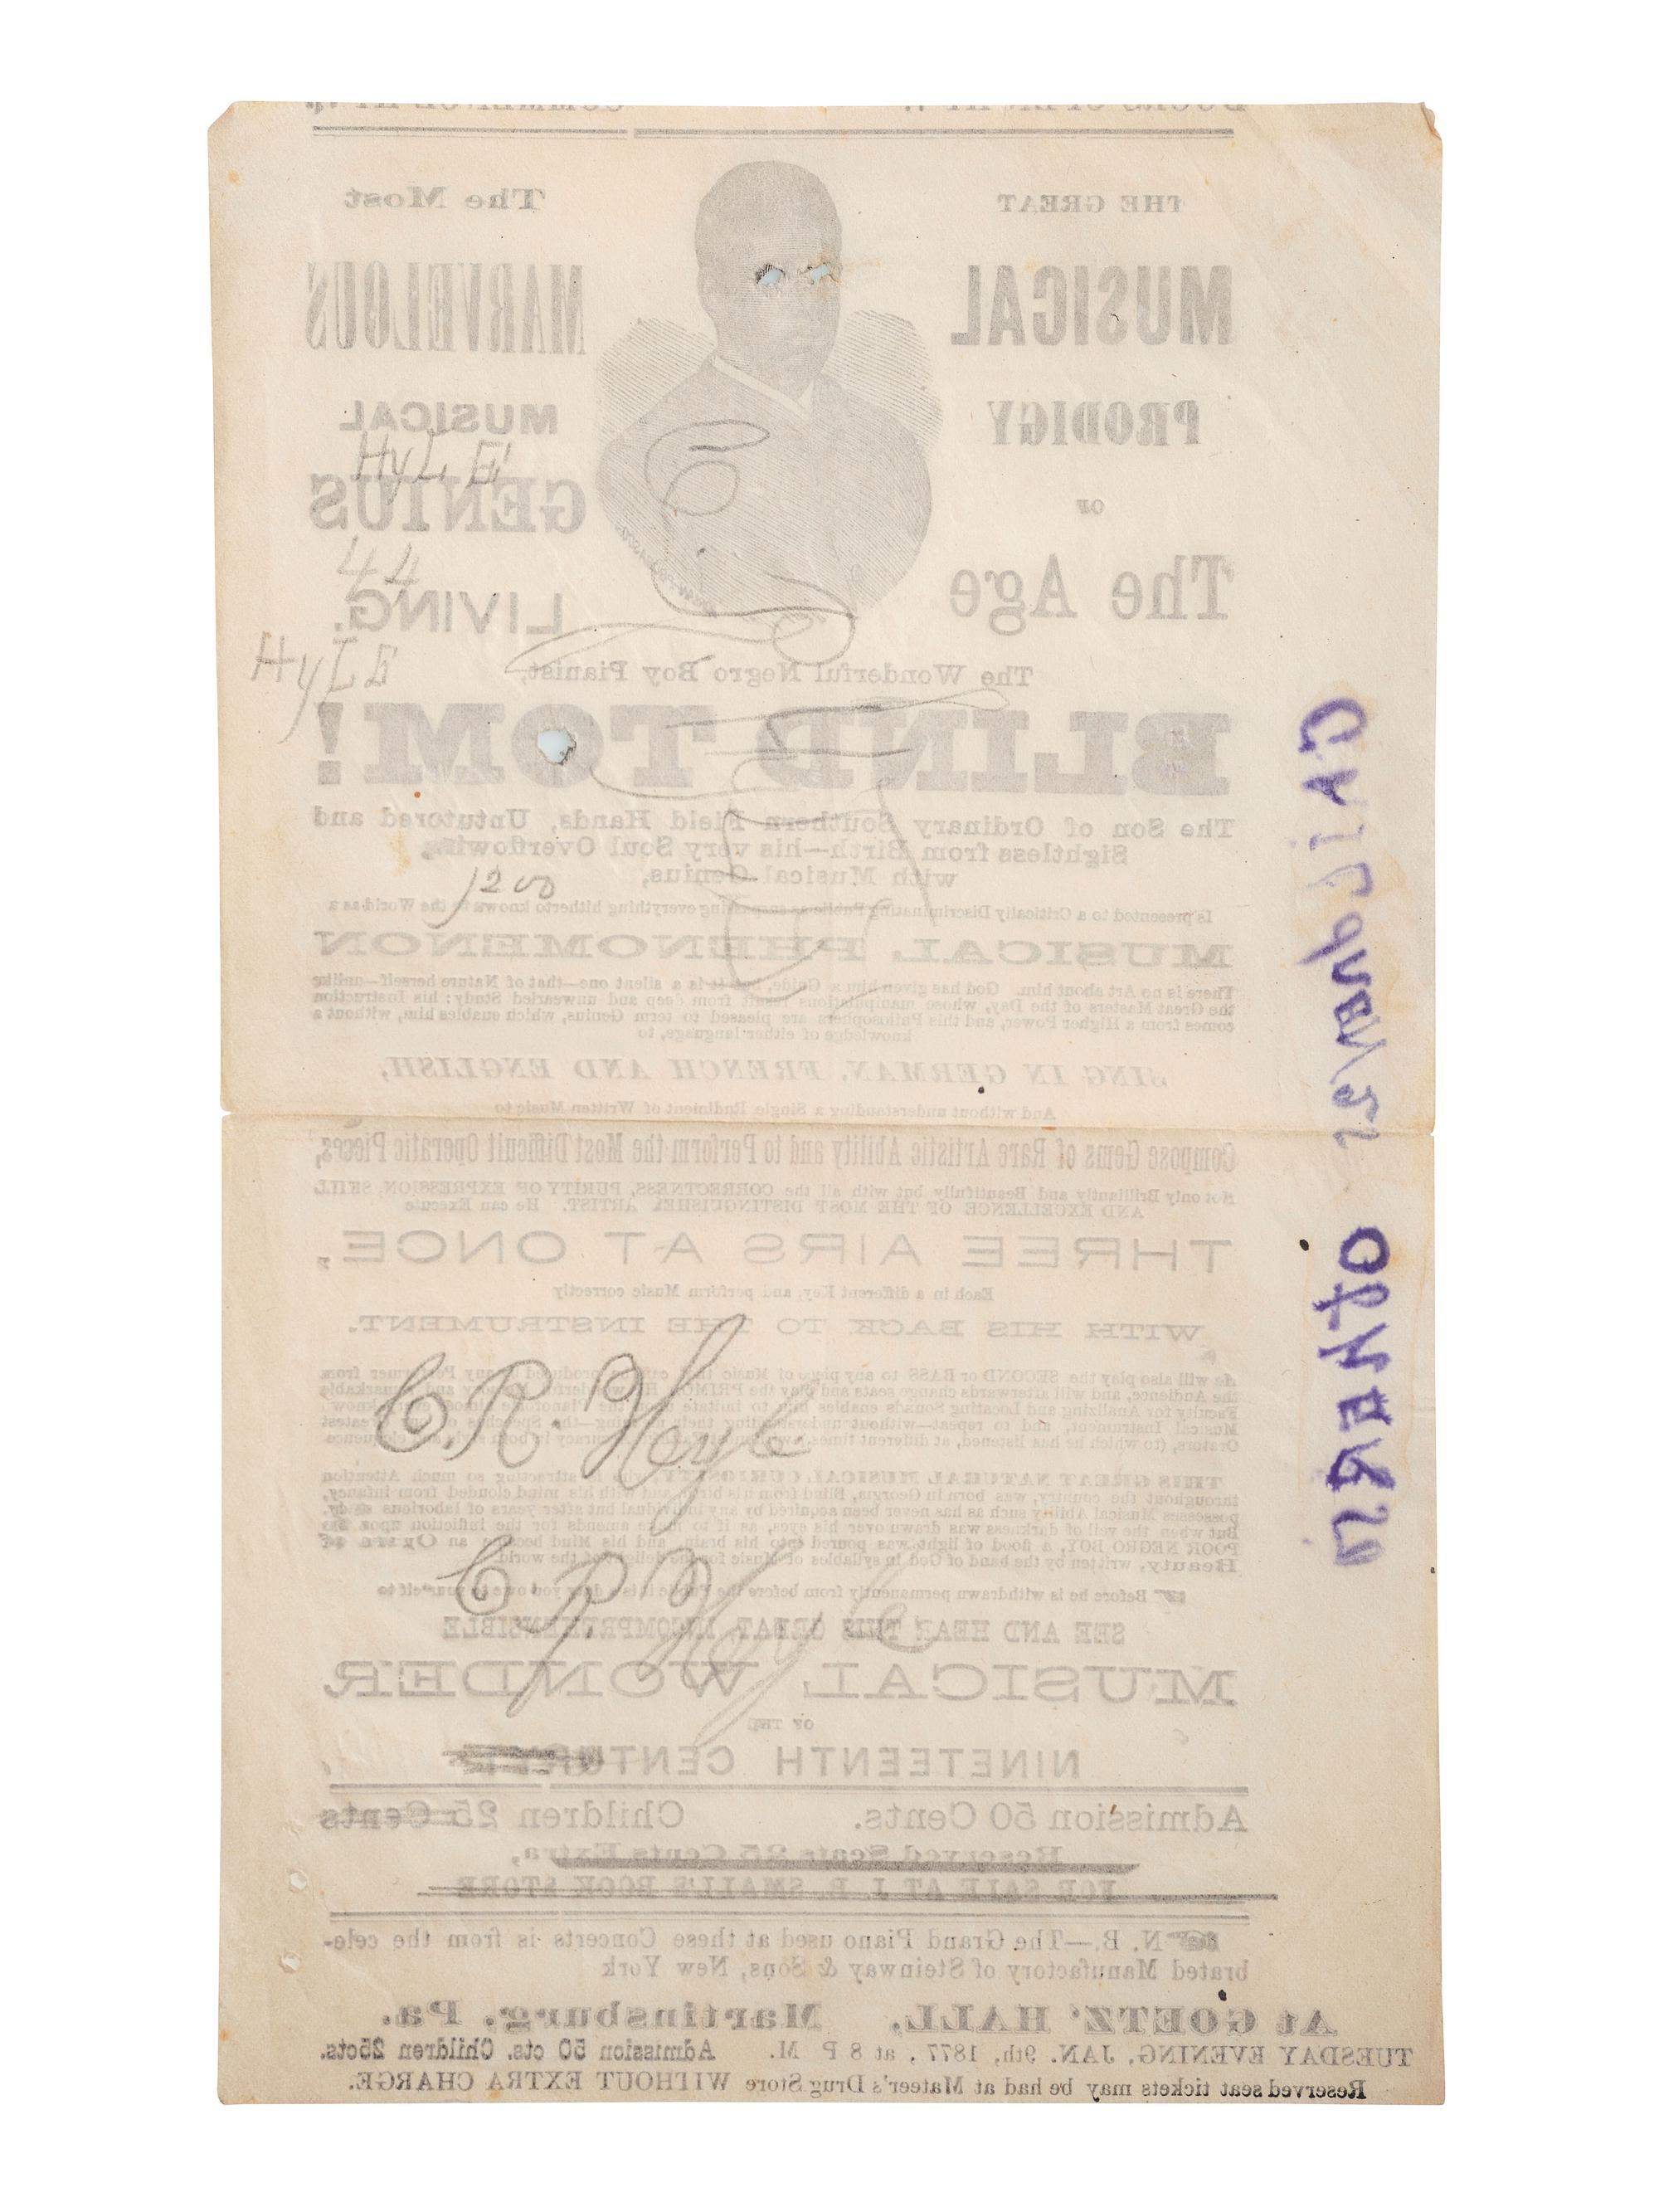 DOORS OPEN AT 7. COMMENCE AT 8.
THE GREAT
MUSICAL
PRODIGY
OF
The Age
The Most
MARVELOUS
MUSICAL
GENIUS
LIVING.
HyLE
44
HyLE
The Wonderful Negro Boy Pianist,
BLIND TOM!
The Son of Ordinary Southern Field Hands, Untutored and
Sightless from Birth—his very Soul Overflowing
with Musical Genius,
1200
Is presented to a Critically Discriminating Public as surpassing everything hitherto known to the World as a
MUSICAL PHENOMENON
There is no Art about him. God has given him a Guide, but it is a silent one—that of Nature herself—unlike
the Great Masters of the Day, whose manipulations result from deep and unwearied Study; his Instruction
comes from a Higher Power, and this Philosophers are pleased to term Genius, which enables him, without a
knowledge of either language, to
SING IN GERMAN, FRENCH AND ENGLISH,
And without understanding a Single Rudiment of Written Music to
Compose Gems of Rare Artistic Ability and to Perform the Most Difficult Operatic Pieces,
Not only Brilliantly and Beautifully but with all the CORRECTNESS, PURITY OF EXPRESSION, SKILL
AND EXCELLENCE OF THE MOST DISTINGUISHED ARTIST. He can Execute
THREE AIRS AT ONCE,
Each in a different Key, and perform Music correctly
WITH HIS BACK TO THE INSTRUMENT.
He will also play the SECOND or BASS to any piece of Music produced any Performer from
the Audience, and will afterwards change seats and play the PRIMO. His and remarkable
Faculty for Analizing and Locating Sounds enables him to imitate the Piano known
Musical Instrument, and to repeat—without understanding their meaning—the Speeches of Greatest
Orators, (to which he has listened, at different times, accuracy in both style and eloquence
C. R. Heyle
THIS GREAT NATURAL MUSICAL CURIOSITY, who is attracting so much Attention
throughout the country, was born in Georgia, Blind from his birth, and with his mind clouded from infancy,
possesses Musical Ability such as has never been acquired by any individual but after years of laborious study.
But when the veil of darkness was drawn over his eyes, as if to make amends for the infliction upon the
POOR NEGRO BOY, a flood of light was poured into his brain, and his Mind became an Opera of
Beauty, written by the hand of God in syllables of Music for the delight of the world.
Before he is withdrawn permanently from before the Public it is a duty you owe to yourself to
SEE AND HEAR THIS GREAT INCOMPREHENSIBLE
MUSICAL WONDER
OF THE
NINETEENTH CENTURY
Admission 50 Cents. Children 25 Cents
Reserved Seats 25 Cents Extra,
FOR SALE AT J. B. SMALL'S BOOK STORE
N. B.—The Grand Piano used at these Concerts is from the cele-
brated Manufactory of Steinway & Sons, New York
At GOETZ' HALL, Martinsburg, Pa.
TUESDAY EVENING, JAN. 9th, 1877, at 8 P M. Admission 50 cts. Children 25cts.
Reserved seat tickets may be had at Mateer's Drug Store WITHOUT EXTRA CHARGE.